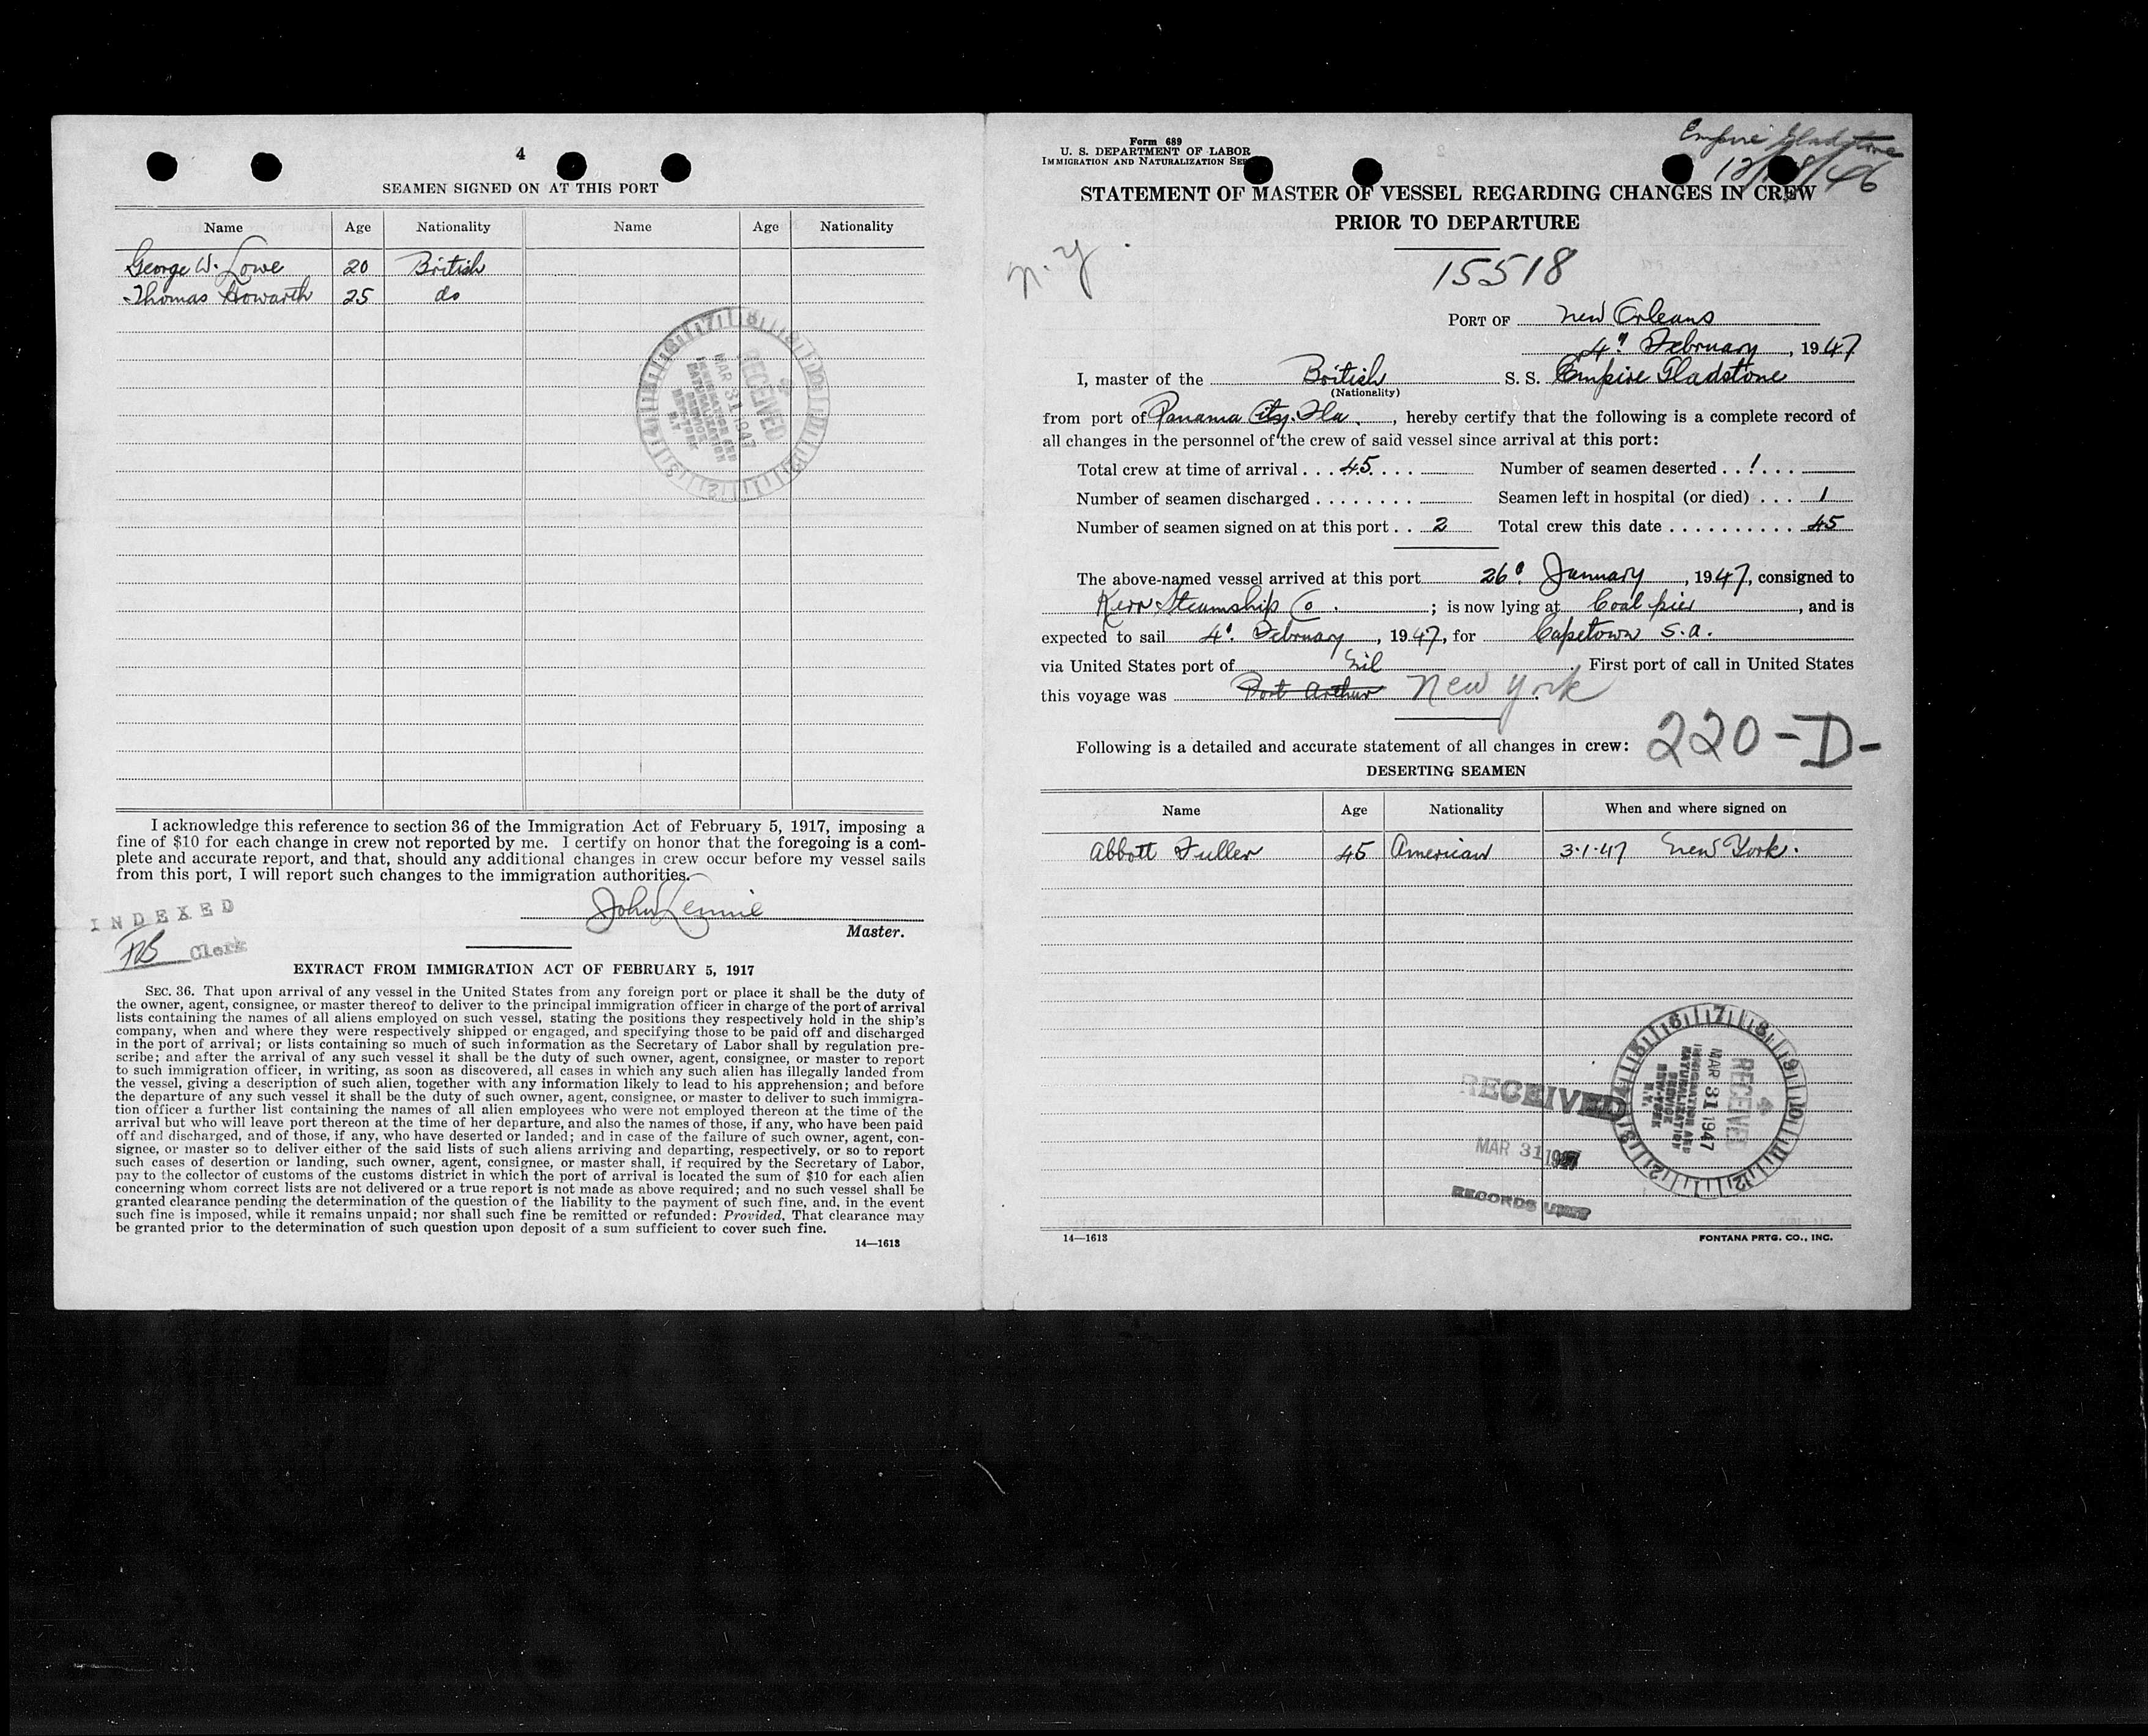 4
SEAMEN SIGNED ON AT THIS PORT
Name Age Nationality Name Age Nationality
George W. Lowe 20 British
Thomas Howarth 25 do
RECEIVED
MAR 31 1947
IMMIGRATION AND
NATURALIZATION
SERVICE
NEW-YORK
N.Y.
I acknowledge this reference to section 36 of the Immigration Act of February 5, 1917, imposing a
fine of $10 for each change in crew not reported by me. I certify on honor that the foregoing is a com-
plete and accurate report, and that, should any additional changes in crew occur before my vessel sails
from this port, I will report such changes to the immigration authorities.
John Lennie
Master.
INDEXED
Clerk
EXTRACT FROM IMMIGRATION ACT OF FEBRUARY 5, 1917
SEC. 36. That upon arrival of any vessel in the United States from any foreign port or place it shall be the duty of
the owner, agent, consignee, or master thereof to deliver to the principal immigration officer in charge of the port of arrival
lists containing the names of all aliens employed on such vessel, stating the positions they respectively hold in the ship's
company, when and where they were respectively shipped or engaged, and specifying those to be paid off and discharged
in the port of arrival; or lists containing so much of such information as the Secretary of Labor shall by regulation pre-
scribe; and after the arrival of any such vessel it shall be the duty of such owner, agent, consignee, or master to report
to such immigration officer, in writing, as soon as discovered, all cases in which any such alien has illegally landed from
the vessel, giving a description of such alien, together with any information likely to lead to his apprehension; and before
the departure of any such vessel it shall be the duty of such owner, agent, consignee, or master to deliver to such immigra-
tion officer a further list containing the names of all alien employees who were not employed thereon at the time of the
arrival but who will leave port thereon at the time of her departure, and also the names of those, if any, who have been paid
off and discharged, and of those, if any, who have deserted or landed; and in case of the failure of such owner, agent, con-
signee, or master so to deliver either of the said lists of such aliens arriving and departing, respectively, or so to report
such cases of desertion or landing, such owner, agent, consignee, or master shall, if required by the Secretary of Labor,
pay to the collector of customs of the customs district in which the port of arrival is located the sum of $10 for each alien
concerning whom correct lists are not delivered or a true report is not made as above required; and no such vessel shall be
granted clearance pending the determination of the question of the liability to the payment of such fine, and, in the event
such fine is imposed, while it remains unpaid; nor shall such fine be remitted or refunded: Provided, That clearance may
be granted prior to the determination of such question upon deposit of a sum sufficient to cover such fine.
14—1613
Empire Gladstone
Form 689
U. S. DEPARTMENT OF LABOR
IMMIGRATION AND NATURALIZATION
STATEMENT OF MASTER OF VESSEL REGARDING CHANGES IN CREW
PRIOR TO DEPARTURE
n.y.
15518
PORT OF New Orleans
4th February, 1947
I, master of the British S. S. Empire Gladstone
(Nationality)
from port of Panama City. Fla., hereby certify that the following is a complete record of
all changes in the personnel of the crew of said vessel since arrival at this port:
Total crew at time of arrival . . . 45 . . . Number of seamen deserted . . 1 . . .
Number of seamen discharged . . . . . . . . Seamen left in hospital (or died) . . . 1
Number of seamen signed on at this port . . 2 Total crew this date . . . . . . . . . . 45
The above-named vessel arrived at this port 26 January, 1947, consigned to
Kerr Steamship Co.; is now lying at Coal pier, and is
expected to sail 4 February, 1947, for Capetown S.A.
via United States port of Nil. First port of call in United States
this voyage was Port Arthur New York
Following is a detailed and accurate statement of all changes in crew: 220-D-
DESERTING SEAMEN
Name Age Nationality When and where signed on
Abbott Fuller 45 American 3·1·47 New York.
RECEIVED
MAR 31 1947
RECORDS UNIT
RECEIVED
MAR 31 1947
IMMIGRATION AND
NATURALIZATION
SERVICE
NEW-YORK
N.Y.
14—1613 FONTANA PRTG. CO., INC.